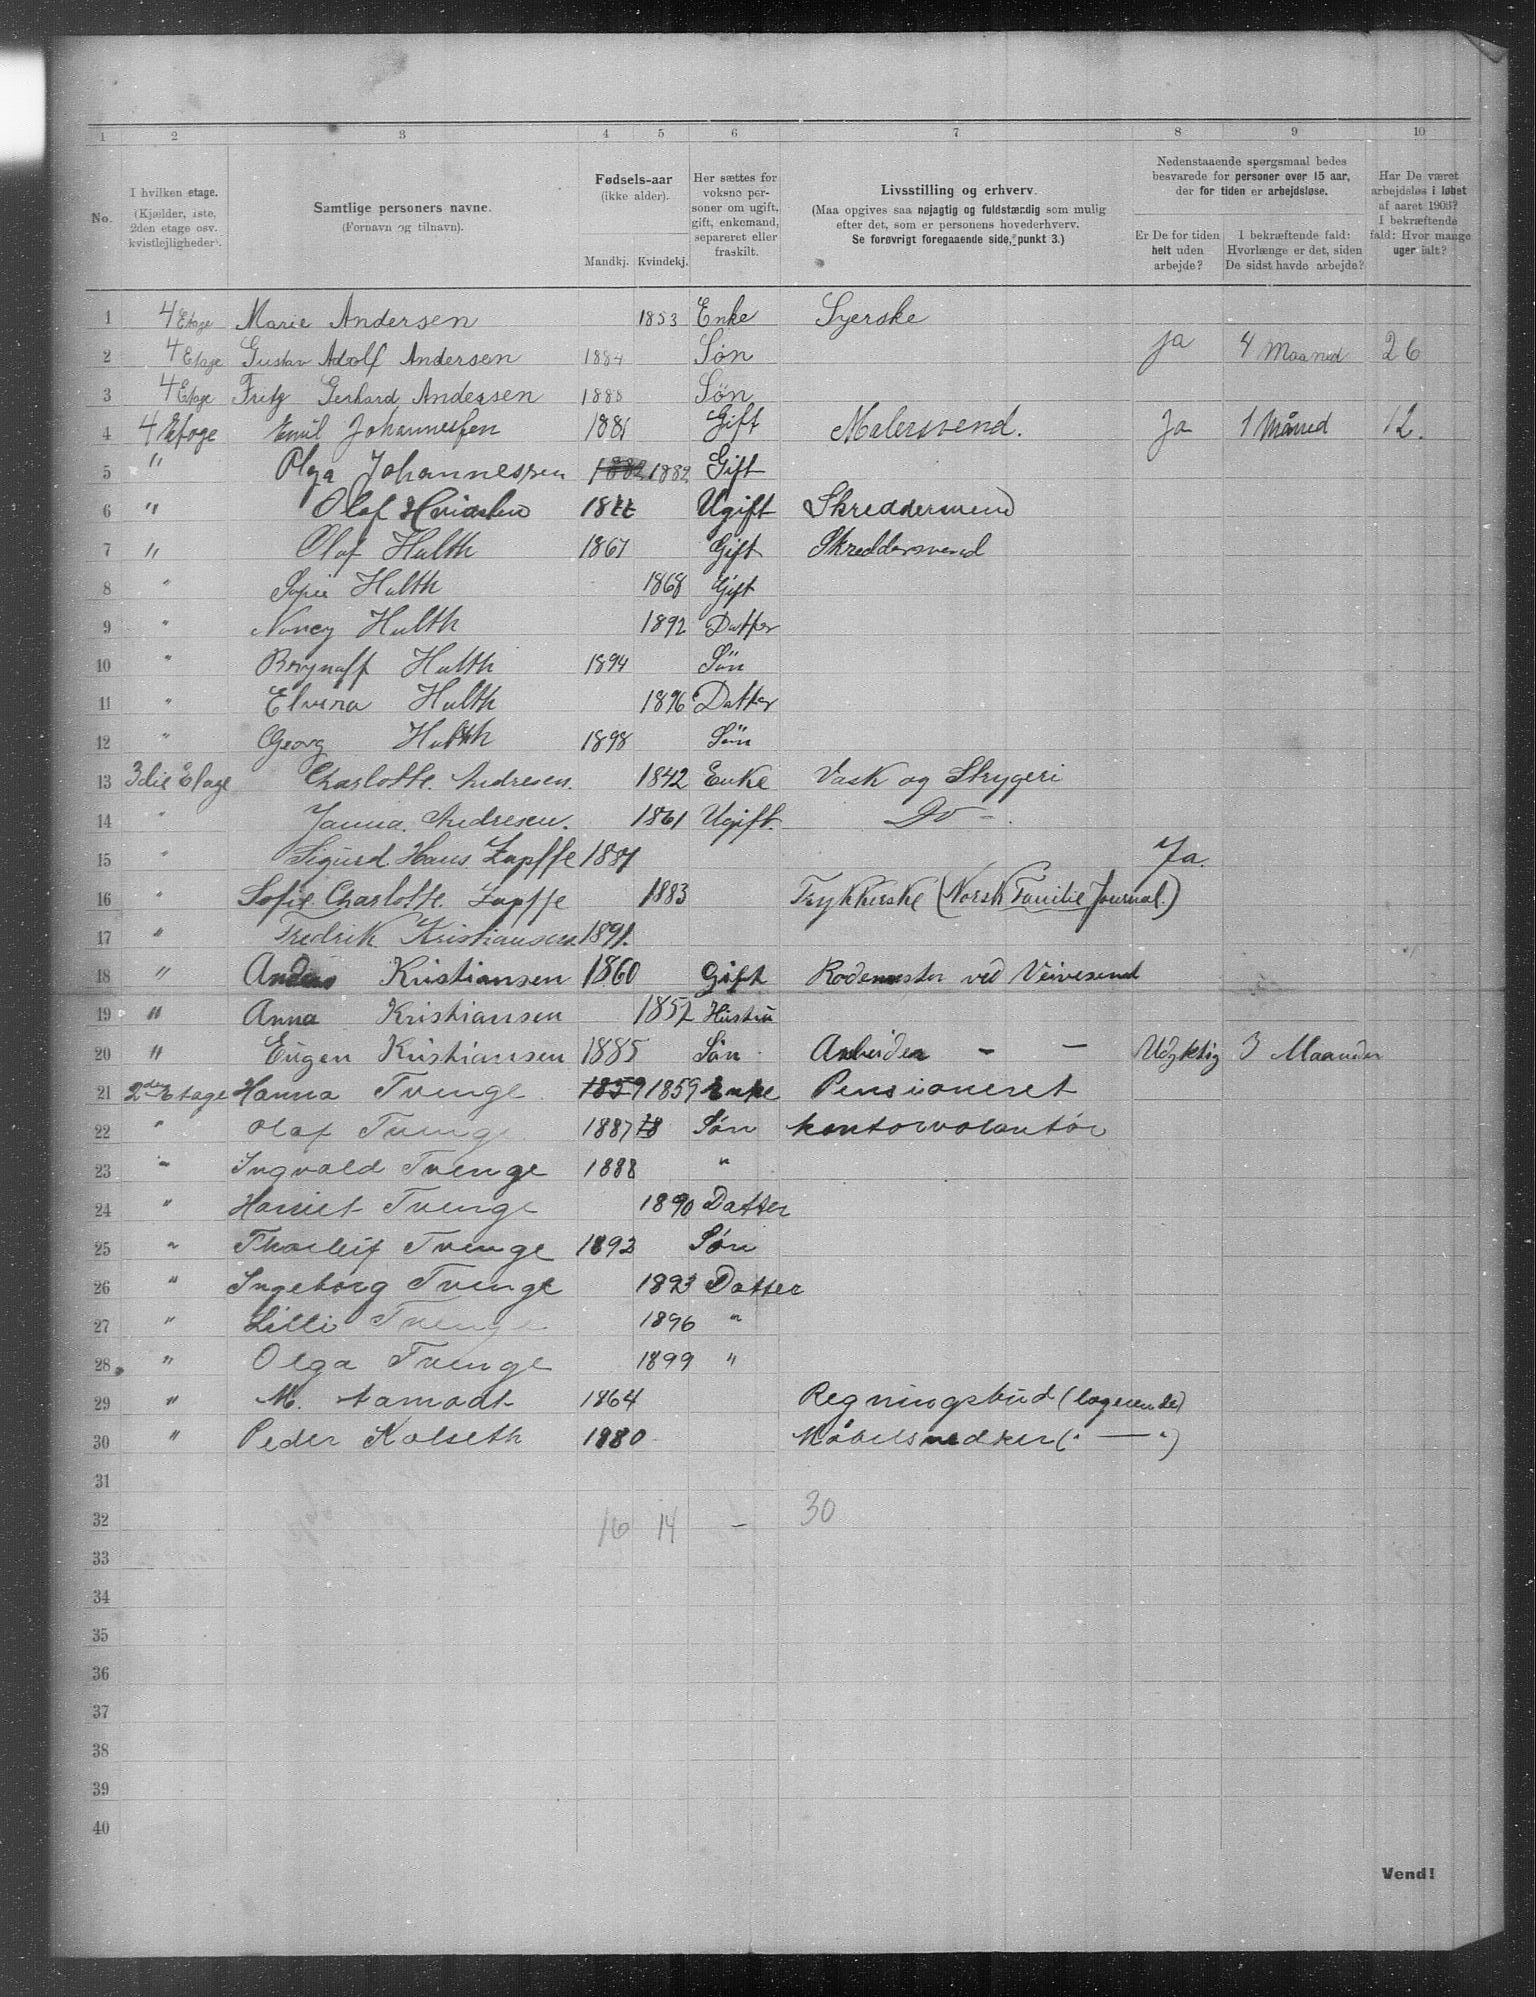 1 2 3 4 5 6 7 8 9 10
No. I hvilken etage. (Kjælder, 1ste, 2den etage osv. kvistlejligheder). Samtlige personers navne. (Fornavn og tilnavn). Fødsels-aar (ikke alder). Mandkj. Kvindekj. Her sættes for voksne personer om ugift, gift, enkemand, separeret eller fraskilt. Livsstilling og erhverv. (Maa opgives saa nøjagtig og fuldstændig som mulig efter det, som er personens hovederhverv. Se forøvrigt foregaaende side, punkt 3.) Nedenstaaende spørgsmaal bedes besvarede for personer over 15 aar, der for tiden er arbejdsløse. Er De for tiden helt uden arbejde? I bekræftende fald: Hvorlænge er det, siden De sidst havde arbejde? Har De været arbejdsløs i løbet af aaret 1903? I bekræftende fald: Hvor mange uger ialt?
1 4 Etage Marie Andersen 1853 Enke Syerske
2 4 Etage Gustav Adolf Andersen 1884 Søn ja 4 Maaned 26
3 4 Etage Fritz Gerhard Andersen 1888 Søn
4 4 Etage Emil Johannessen 1881 Gift Malersvend. Ja 1 Måned 12.
5 " Olga Johannessen 1882 1882 Gift
6 " Olaf Ugift Skreddersvend
7 " Olaf Hulth 1867 Gift Skreddersvend
8 " Sofie Hulth 1868 Gift
9 " Nancy Hulth 1892 Datter
10 " Hulth 1894 Søn
11 " Elvira Hulth 1896 Datter
12 " Georg Hulth 1898 Søn
13 3die Etage Charlotte Andresen. 1842 Enke Vask og Strygeri
14 " Janna Andresen. 1861 Ugift. Do -
15 " Sigurd Hans Zapffe 1881 Ja.
16 " Sofie Charlotte Zapffe 1883 Trykkerske (Norsk Familie Journal.)
17 " Fredrik Kristiansen 1891.
18 " Anders Kristiansen 1860 Gift Rodemester ved Veivesend
19 " Anna Kristiansen 1857 Hustru
20 " Eugen Kristiansen 1885 Søn Arbeider - - Udyktig 3 Maaneder
21 2den Etage Hanna Tvenge 1859 1859 Enke Pensioneret
22 " Olaf Tvenge 1887 18 Søn kontorvolontør
23 " Ingvald Tvenge 1888 "
24 " Harriet Tvenge 1890 Datter
25 " Thorleif Tvenge 1892 Søn
26 " Ingeborg Tvenge 1893 Datter
27 " Lilli Tvenge 1896 "
28 " Olga Tvenge 1899 "
29 " M. Aamodt 1864 Regningsbud (logerende)
30 " Peder Kolseth 1880 Møbelsnedker (" — ")
31
32 16 14 - 30
33
34
35
36
37
38
39
40
Vend!